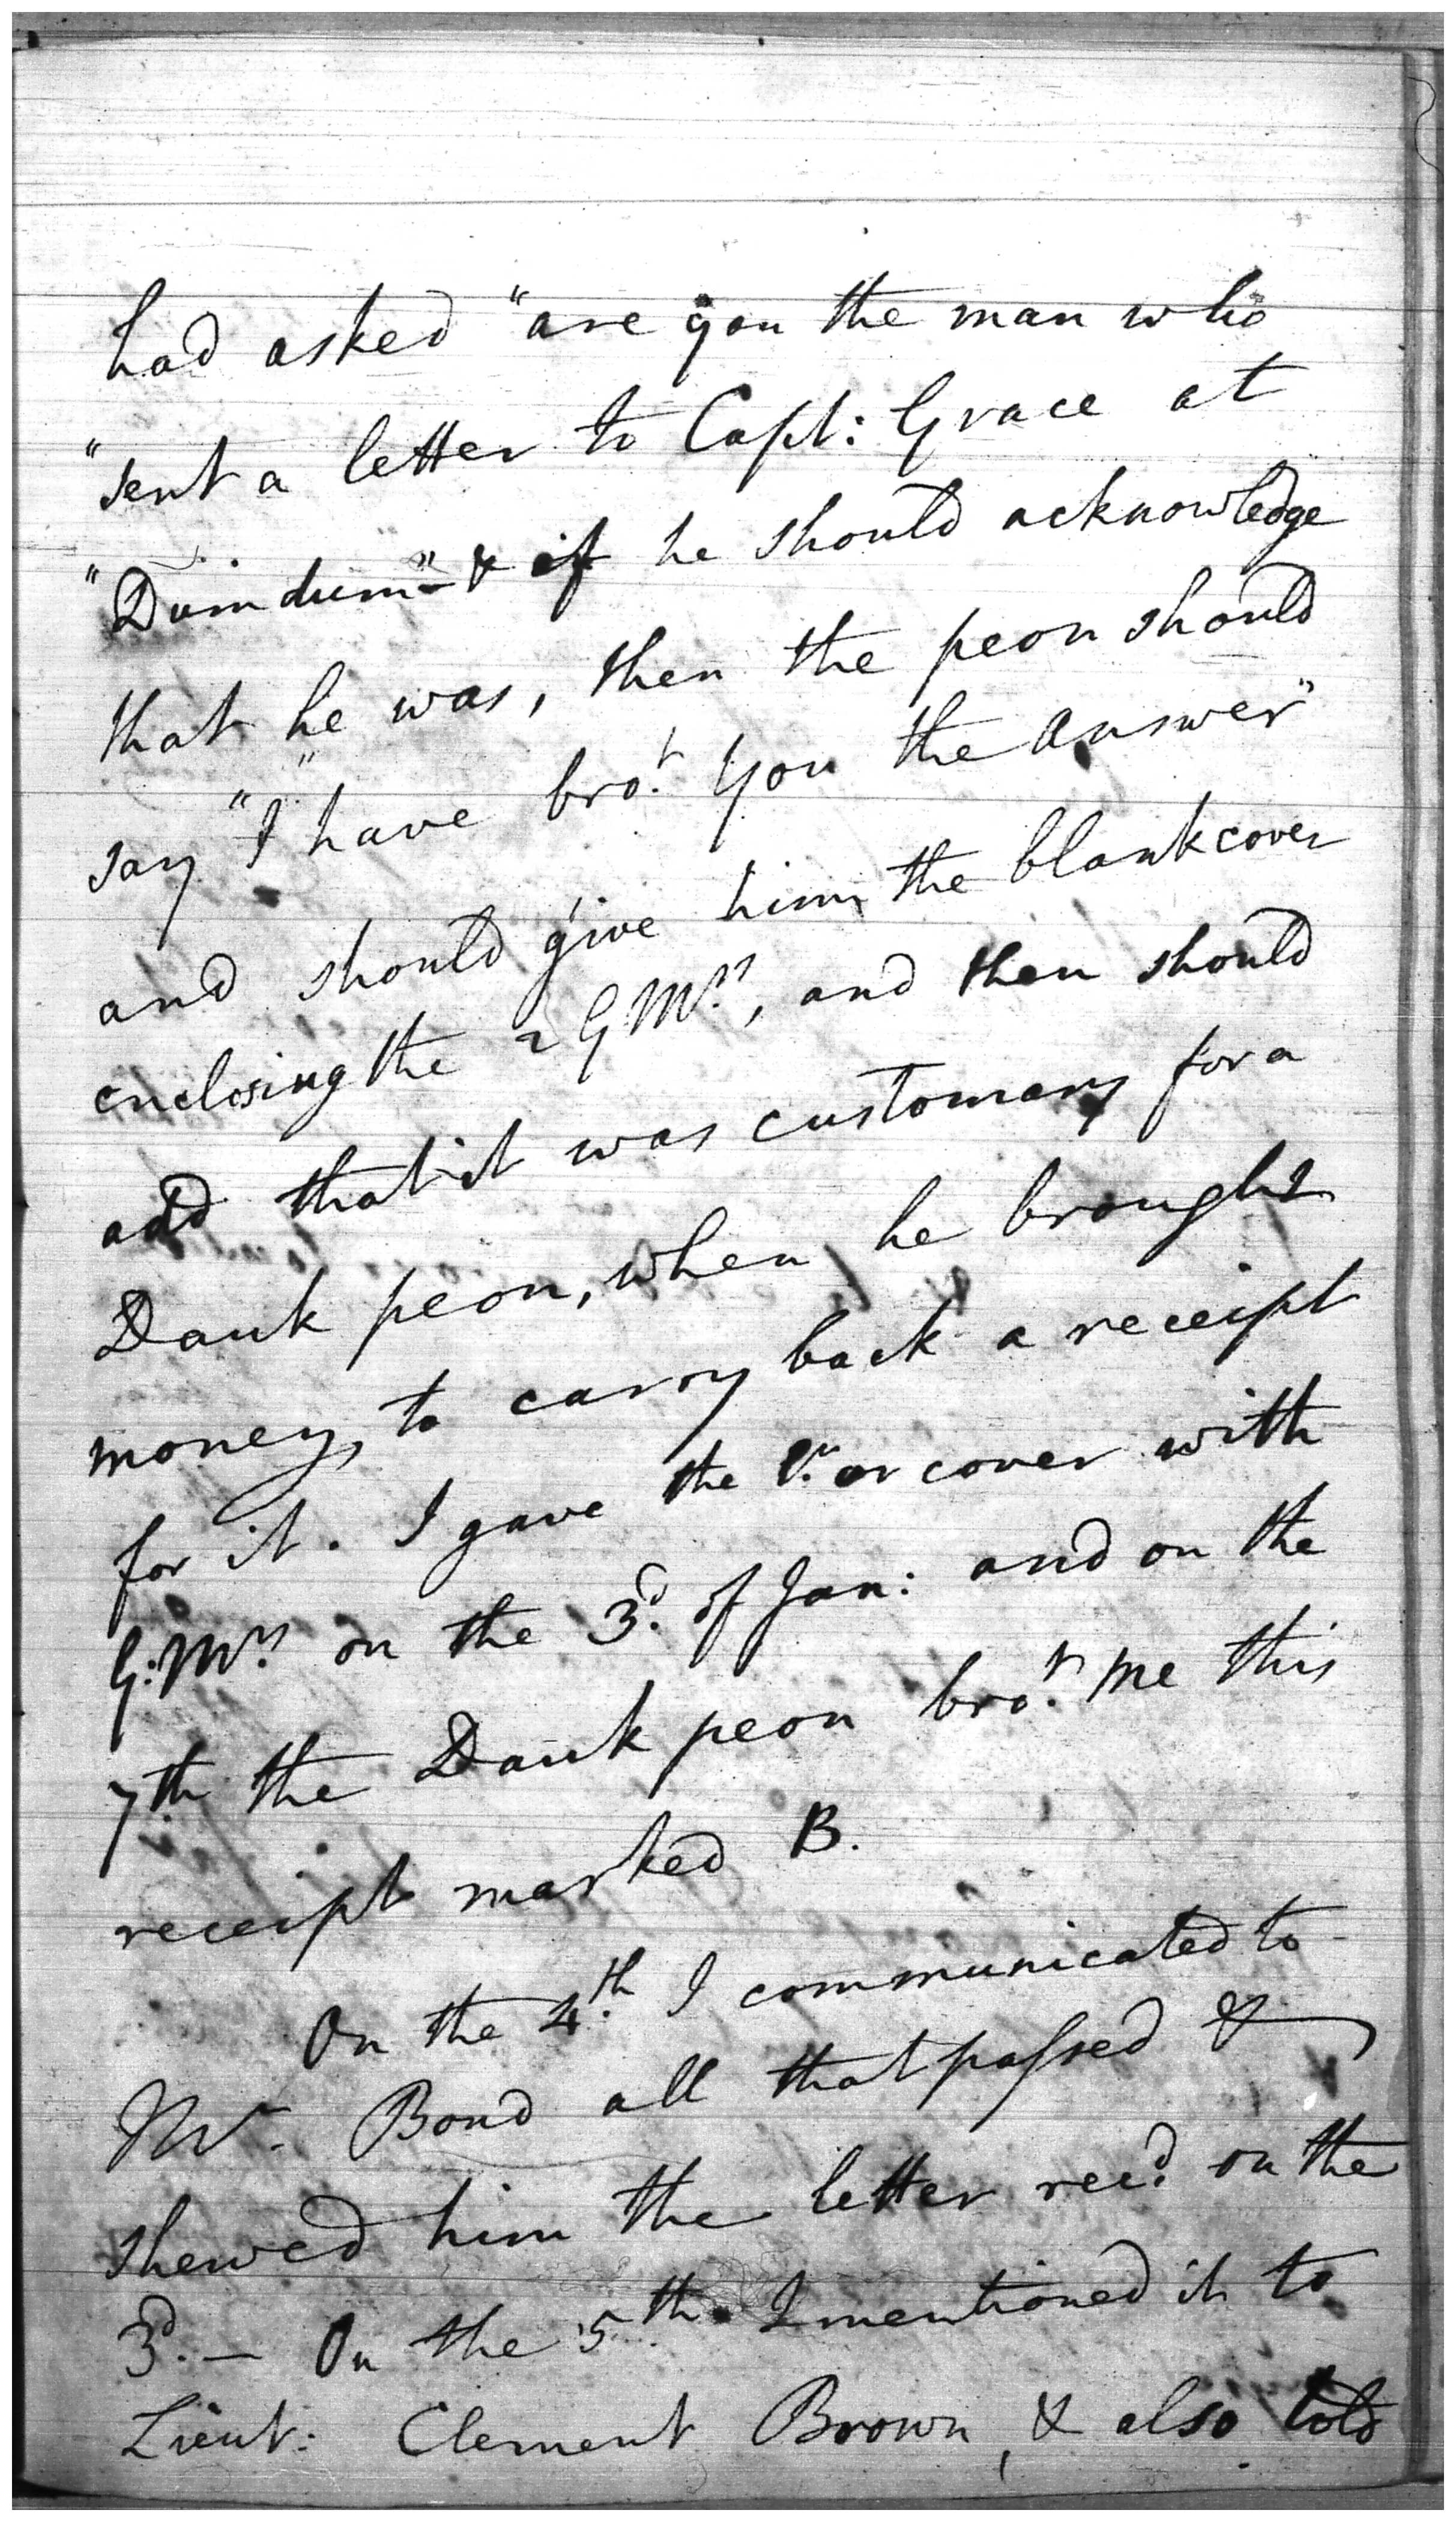 had asked "are you the man who
"sent a letter to Capt: Grace at
"Dumdum"- & if he should acknowledge
that he was, then the peon should
say "I have bro.t you the answer"
and should give him the blank cover
enclosing the 2 G M.rs, and then should
add that it was customary for a
Dauk peon, when he brought
money, to carry back a receipt
for it. I gave the or cover with
G: M.rs on the 3.d of Jan: and on the
7th the Dauk peon bro.t me this
receipt marked B.
On the 4.th I communicated to
Mr. Bond all that passed &
shewed him the letter rec.d on the
3.d - On the 5.th I mentioned it to
Lieut: Clement Brown, & also told